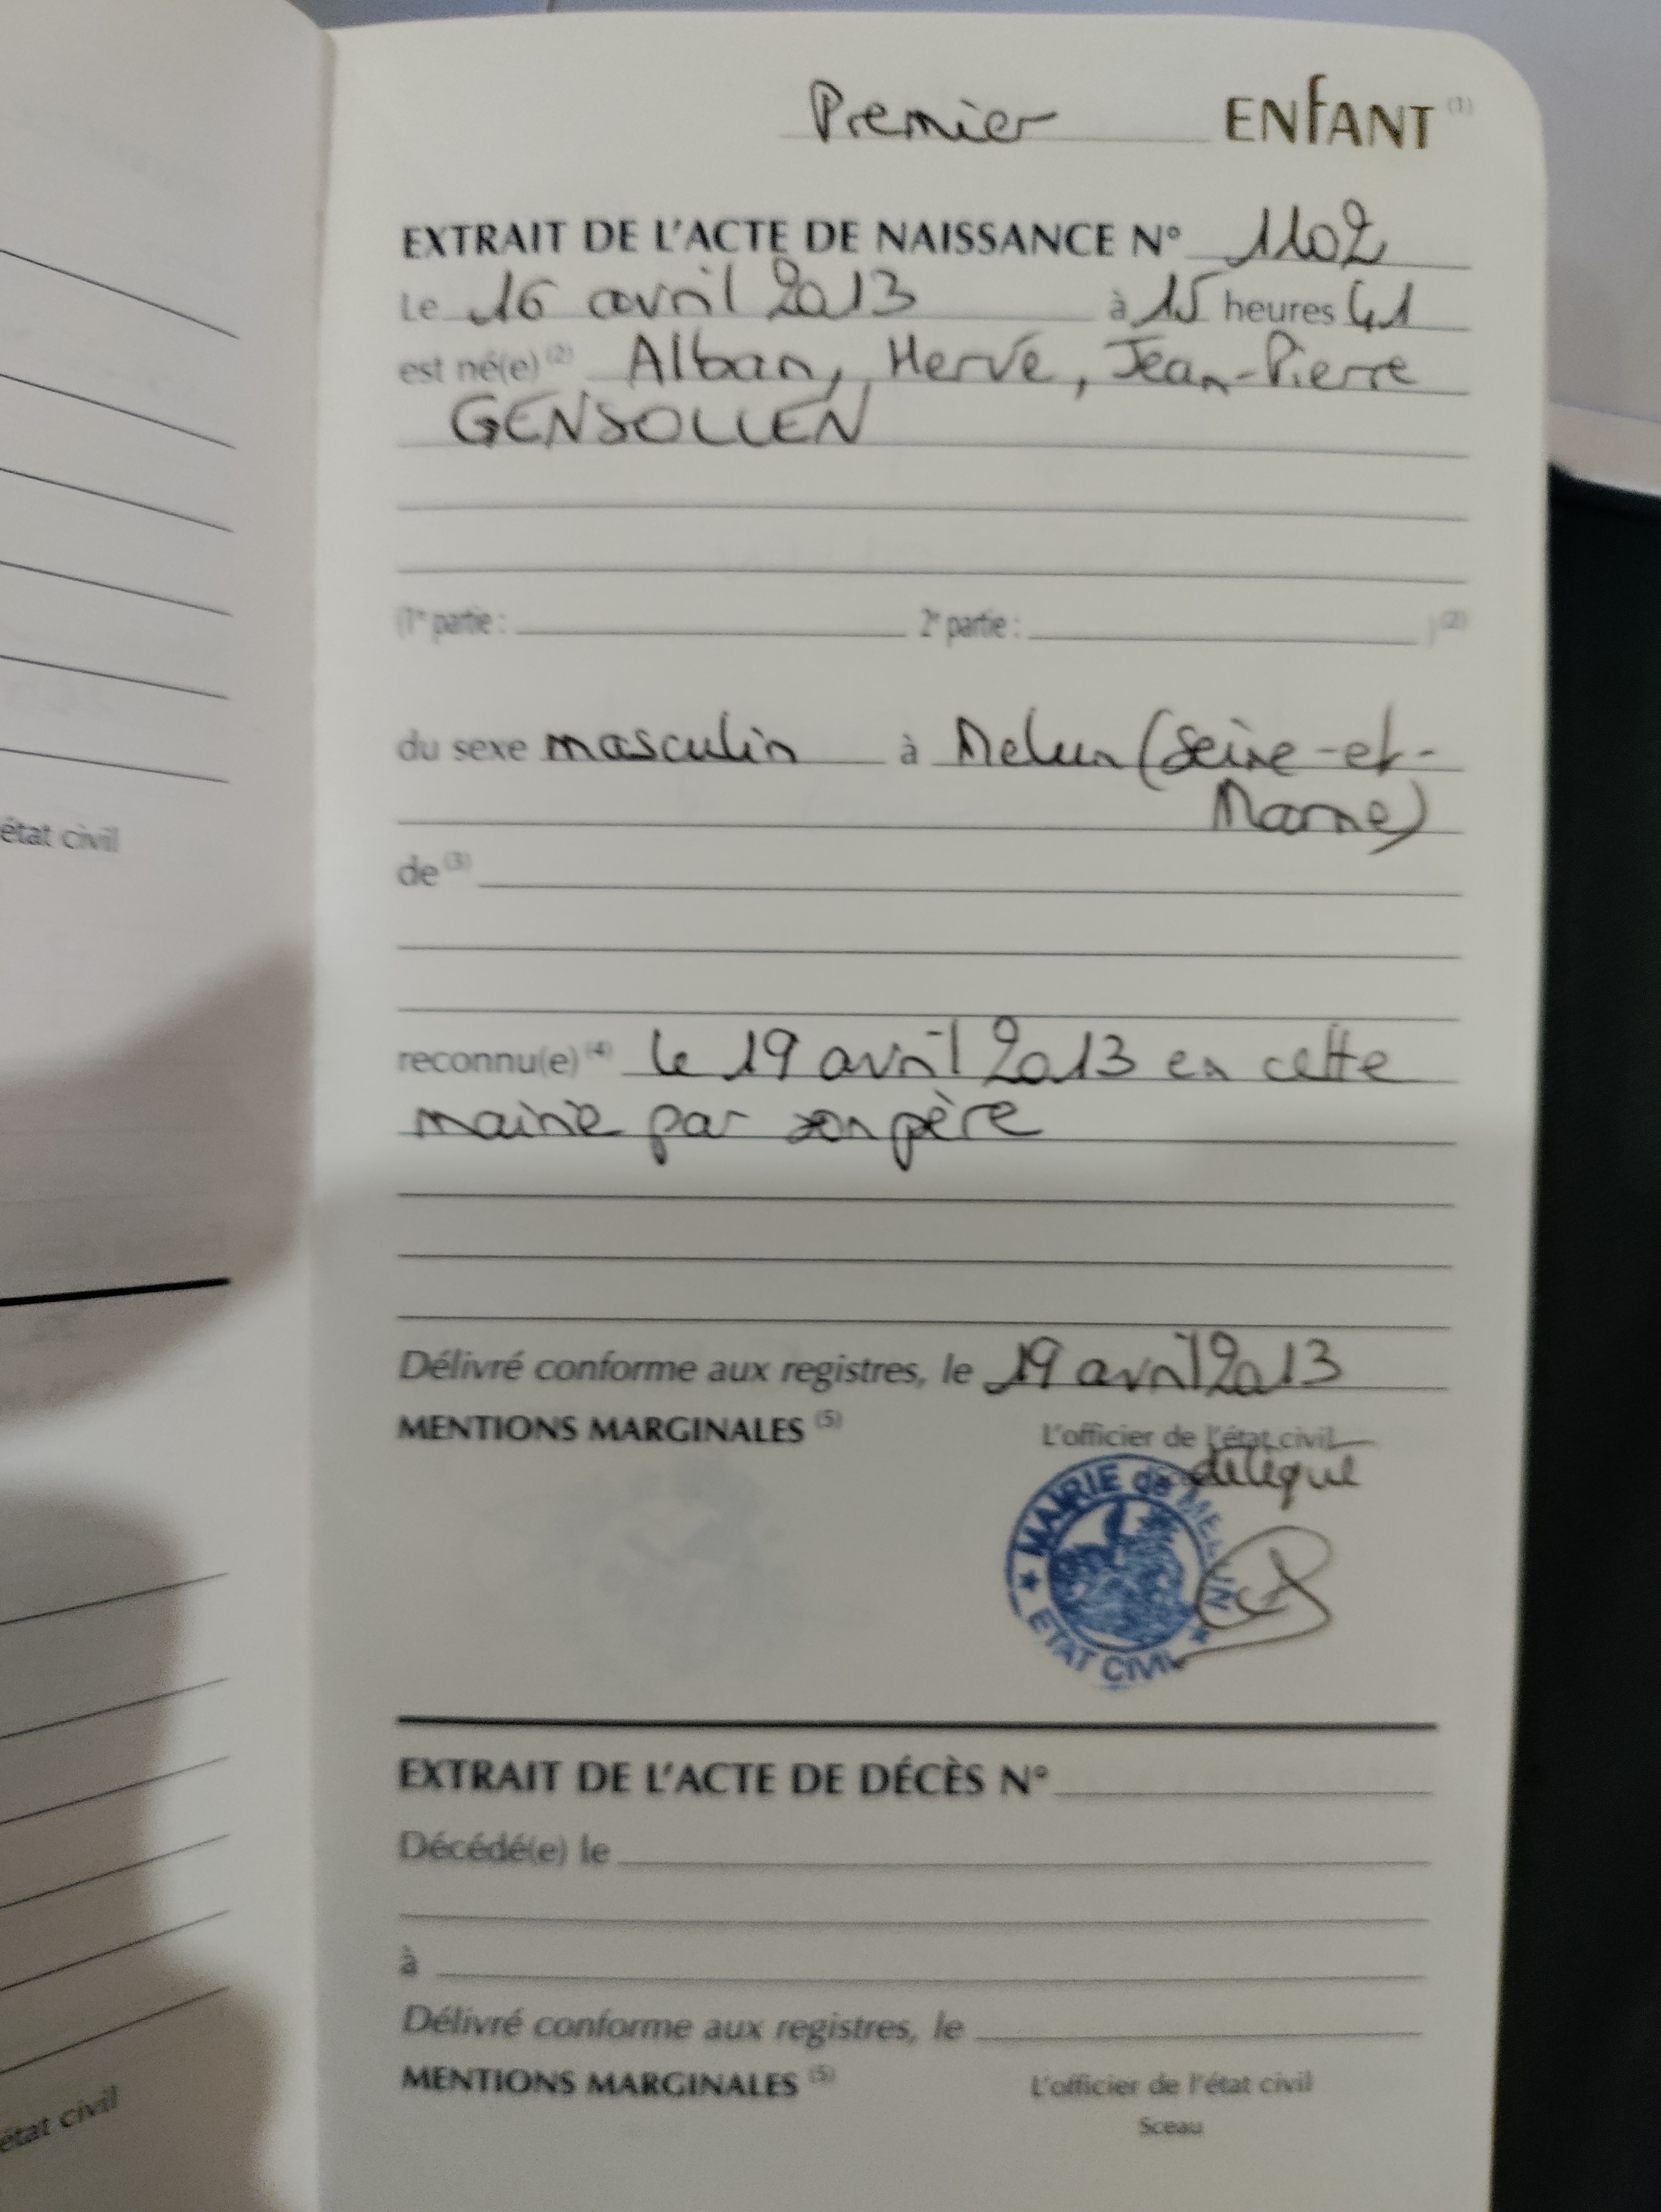 Premier ENFANT (1)
EXTRAIT DE L'ACTE DE NAISSANCE N° 1102
Le 16 avril 2013 à 15 heures 41
est né(e) (2) Alban, Hervé, Jean-Pierre
GENSOLLEN
(1re partie : 2e partie : ) (2)
du sexe masculin à Melun (Seine-et-
Marne)
de (3)
reconnu(e) (4) le 19 avril 2013 en cette
mairie par son père
Délivré conforme aux registres, le 19 avril 2013
MENTIONS MARGINALES (5) L'officier de l'état civil
délégué
MAIRIE de MELUN
ETAT CIVIL
EXTRAIT DE L'ACTE DE DÉCÈS N°
Décédé(e) le
à
Délivré conforme aux registres, le
MENTIONS MARGINALES (5) L'officier de l'état civil
Sceau
état civil
état civil